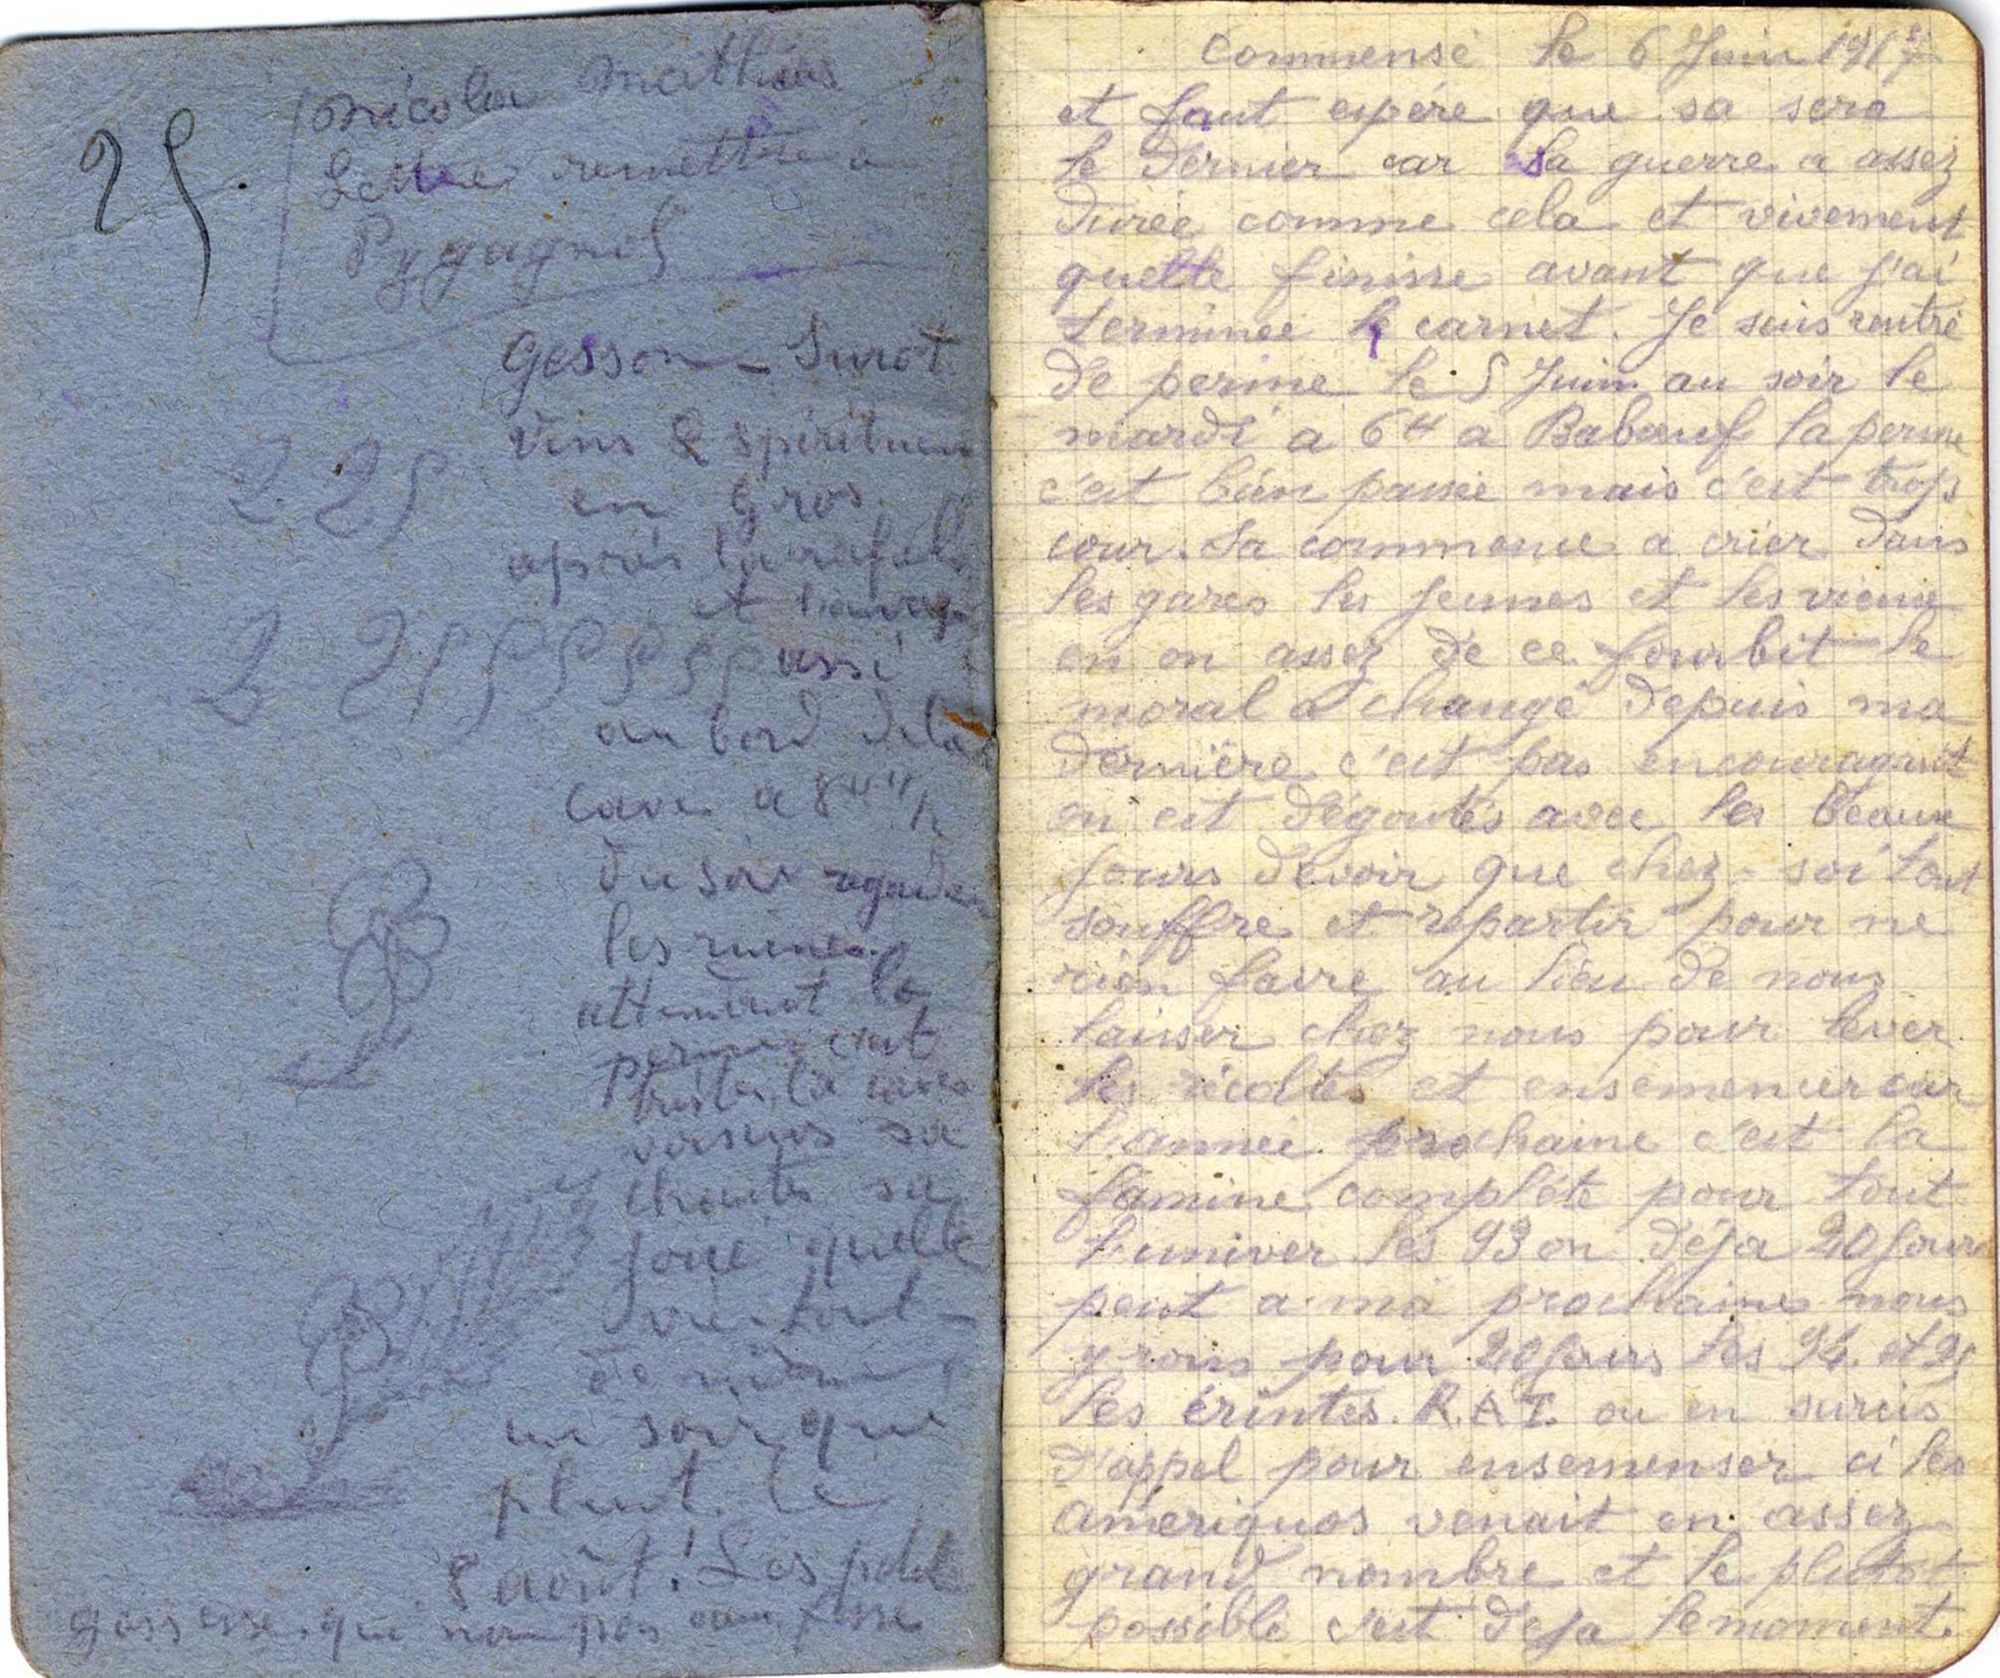 25.
Nicolas Mathias
Lettre remettre a
Pygagnol
Gesson - Surot
vins & spiritueu
en Gros.
225
après
et
passé
au bord dela
cave a 8H 1/2
du soir regarder
les ruines
attendent la
perme c'est
triste la
voisins sa
chante sa
joue quelle
vie tout
de même
un soir que
pleut le
8 août! Les petit
gosserse qui non pas
Commensé le 6 Juin 1917
et faut espére que sa sera
le dernier car la guerre a assez
durée comme cela et vivement
quelle finisse avant que j'ai
terminée le carnet. Je suis rentré
de perme le 5 Juin au soir le
mardi a 6H a Babœuf la perme
c'est bien passée mais c'est trop
cour. Sa commence a crier dans
les gares les jeunes et les vieux
en on assez de ce fourbit le
moral a changé depuis ma
dernière c'est pas encouragent
on est dégoutés avec les beaux
jours devoir que chez-soi tout
souffre et repartir pour ne
rien faire au lieu de nous
laisser chez nous pour lever
les récoltes et ensemencer car
l'année prochaine c'est la
famine complète pour tout
l'univer les 93 on déja 20 jours
peut a ma prochaine nous
yrons pour 20 jours les 94 et 95
les érintés. R.A.T. ou en sursis
d'appel pour ensemenser ci les
amériquos venait en assez
grand nombre et le plutot
possible c'est deja le moment.